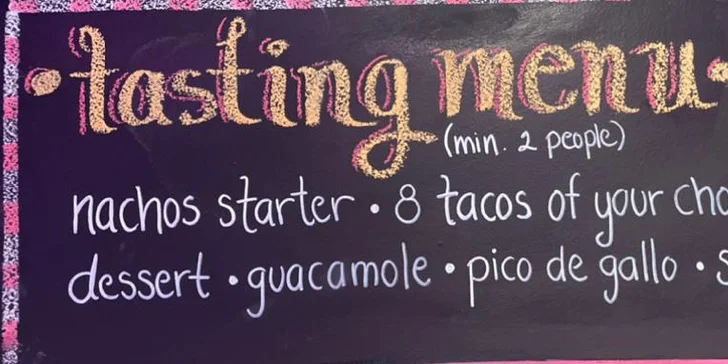 • tasting menu •
(min. 2 people)
nachos starter • 8 tacos of your
dessert • guacamole • pico de gallo •